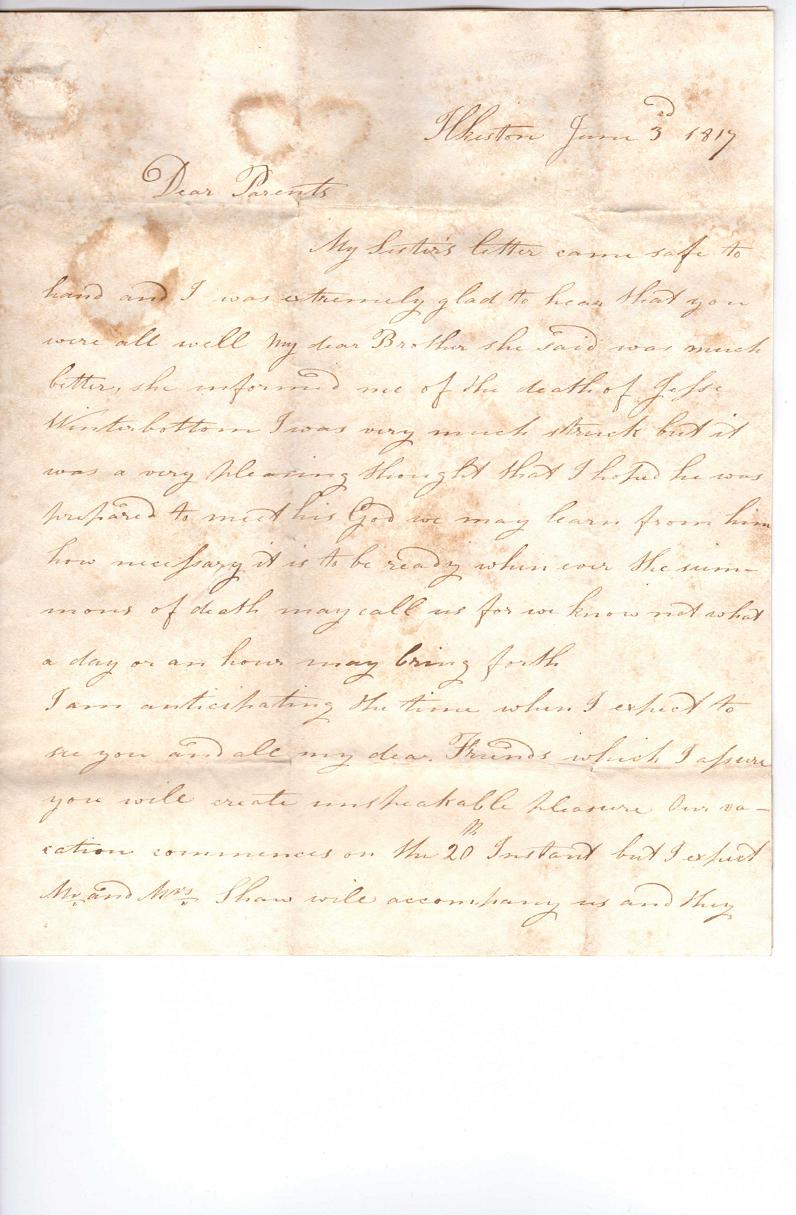 Ilkeston June 3rd 1817
Dear Parents
My Sister's letter came safe to
hand and I was extremely glad to hear that you
were all well My dear Brother she said was much
better, she informed me of the death of Jesse
Winterbottom I was very much struck but it
was a very pleasing thought that I hoped he was
prepared to meet his God we may learn from him
how necessary it is to be ready when ever the sum-
mons of death may call us for we know not what
a day or an hour may bring forth
I am anticipating the time when I expect to
see you and all my dear Friends which I assure
you will create unspeakable pleasure Our va-
cation commences on the 20th Instant but I expect
Mr. and Mrs. Shaw will accompany us and they